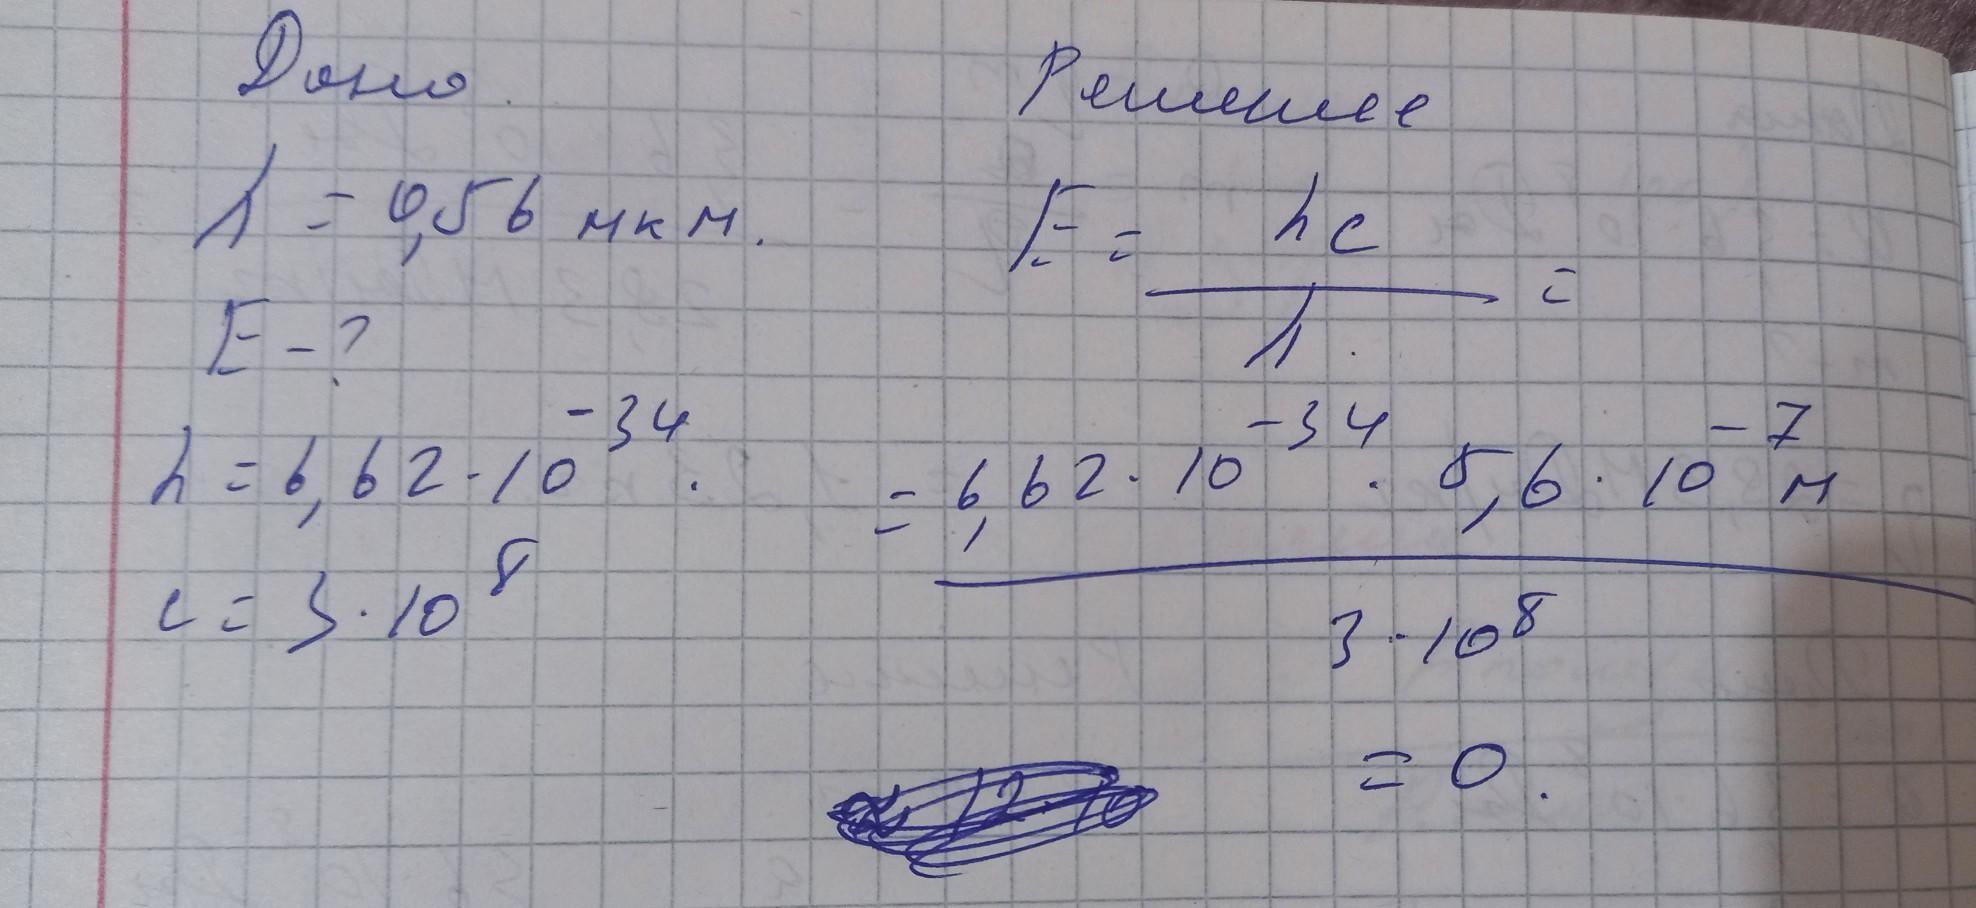 Дано
λ = 0,56 мкм.
E - ?
h = 6,62 · 10^-34.
c = 3 · 10^8
Решение
E = hc / λ =
= 6,62 · 10^-34 · 5,6 · 10^-7 м / 3 · 10^8
= 0.